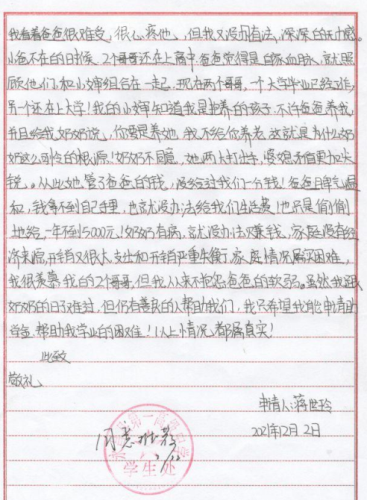 我看着爸爸很难受,很心疼他,但我又没办法,深深的无力感
小爸不在的时候,2个哥哥还在上高中,爸爸觉得是自家血脉,就照
顾他们,和小婶组合在一起,现在两个哥哥,一个大学毕业已经工作,
另一个还在上大学!我的小婶知道我是抱养的孩子,不许爸爸养我,
并且给我奶奶说,你要是养她,我不给你养老,这就是为什么奶
奶这么可怜的根源!奶奶不同意,她两大打出手,婆媳矛盾更加尖
锐。从此她管了爸爸的钱,没给过我们一分钱!爸爸脾气温
和,钱拿不到自己手里,也就没办法给我们生活费!也只是偷偷
地给,一年不到5000元!奶奶有病,就没办法赚钱,家庭没有经
济来源,开销又很大,支出和开销严重失衡,家庭情况属实困难,
我很羡慕我的2个哥哥,但我从来不抱怨爸爸的软弱。虽然我跟
奶奶的日子难过,但仍有善良的人帮助我们,我只希望我能申请助
学金,帮助我学业的困难!以上情况,都属真实!
此致
敬礼
申请人:蒋世玲
2021年12月2日
同意推荐
第一高级中学
学生处